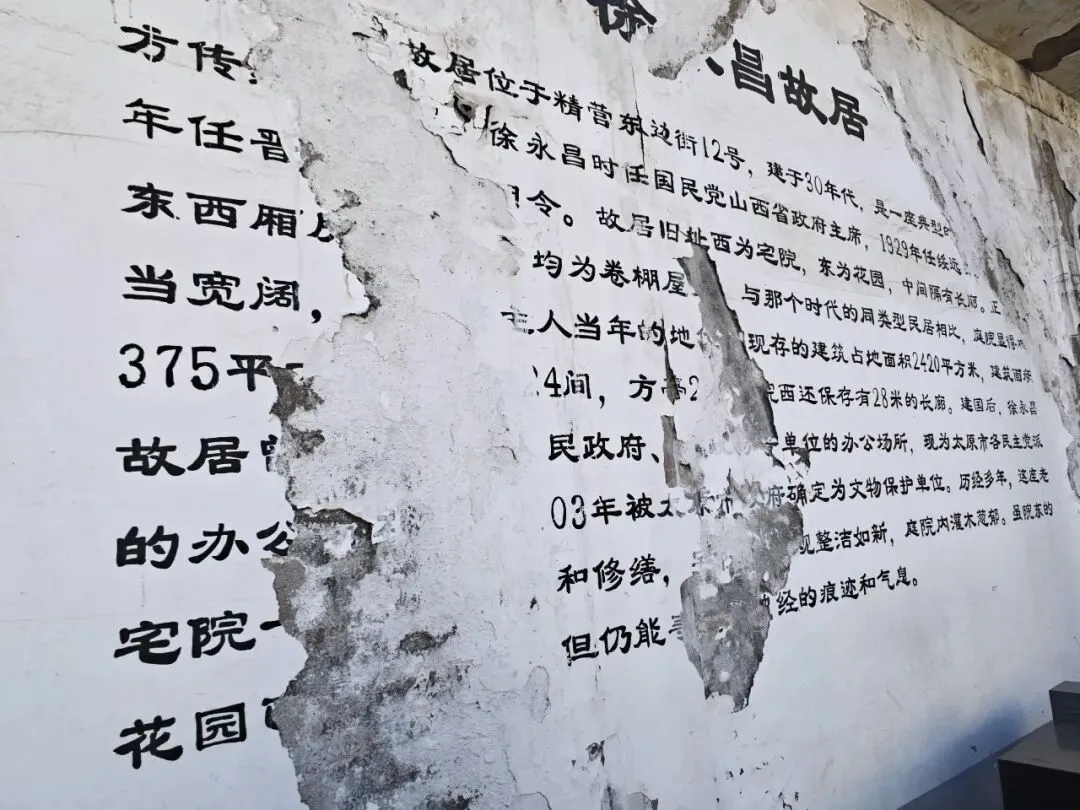 昌故居
故居位于精营东边街12号，建于30年代，是一座典型的
方传 徐永昌时任国民党山西省政府主席，1929年任绥远
年任晋 令。故居旧址西为宅院，东为花园，中间隔有长廊。正
东西厢 均为卷棚屋 与那个时代的同类型民居相比，庭院显得
当宽阔， 主人当年的地 现存的建筑占地面积2420平方米，建筑面积
375平 24间，方亭2 院西还保存有28米的长廊。建国后，徐永昌
故居曾 民政府、 单位的办公场所，现为太原市各民主党派
的办公 03年被太原市 府确定为文物保护单位。历经多年，这座老
宅院一 和修缮， 现整洁如新，庭院内灌木葱郁。虽院东的
花园 但仍能寻 经的痕迹和气息。